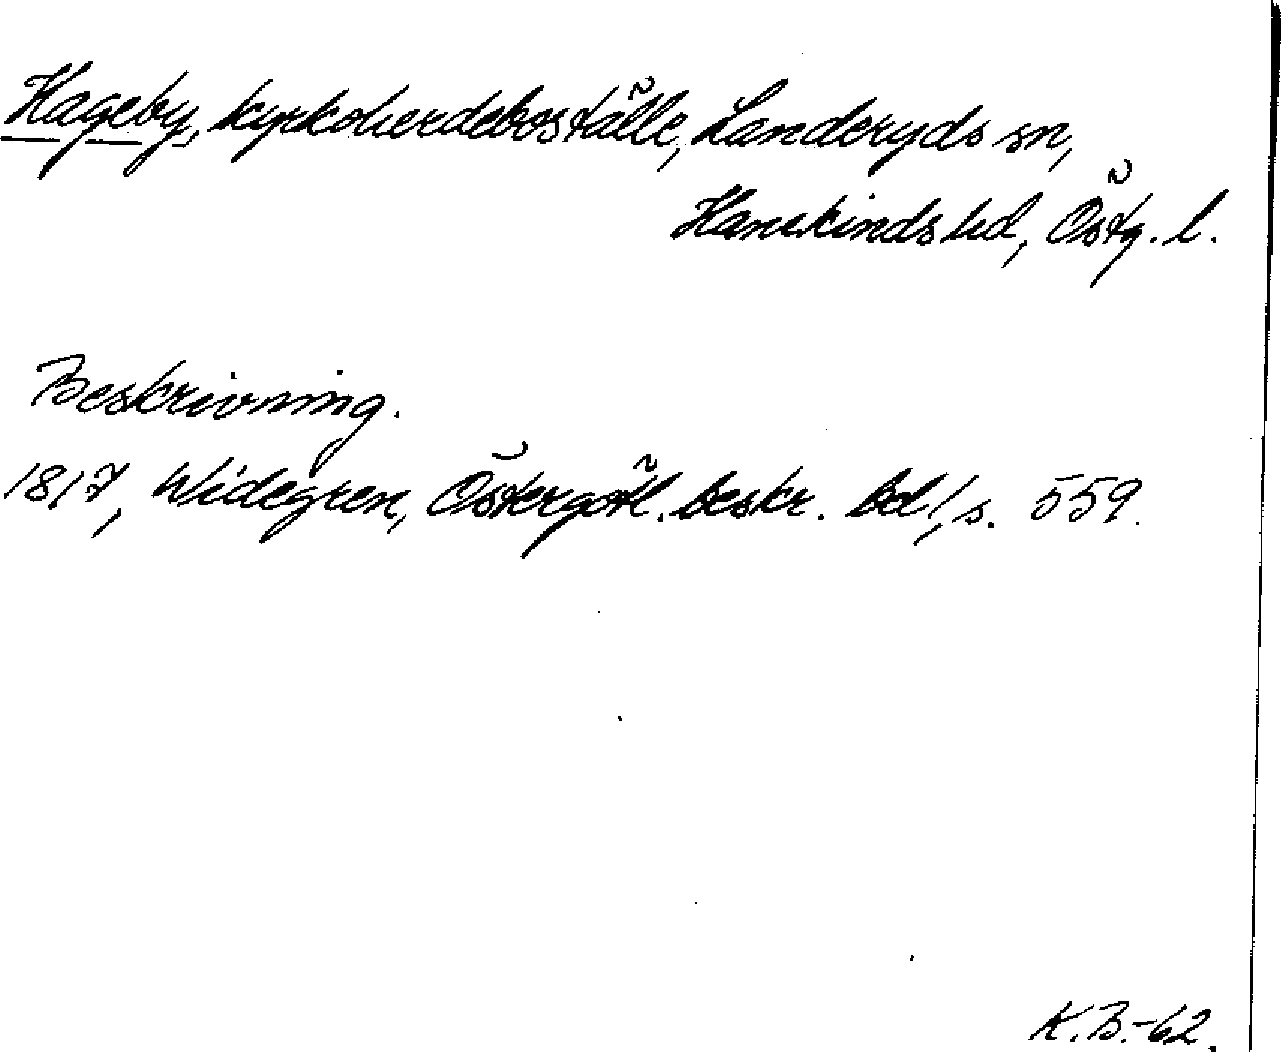 Hageby, kyrkoherdeboställe, Landeryds sn,
Hanekinds hd, Östg. l.
Beskrivning.
1817, Widegren, Östergötl. beskr. Bd 1, s. 559.
K.B.-62.